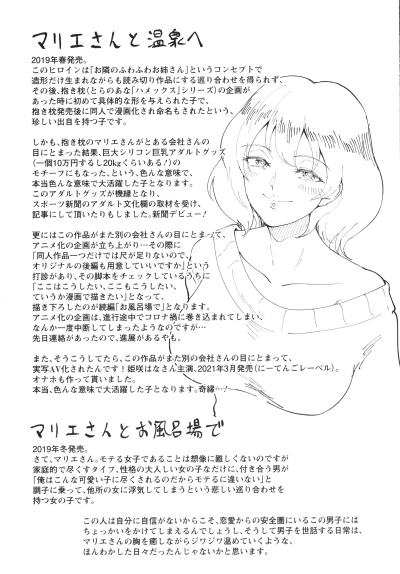 マリエさんと温泉へ
2019年春発売。
このヒロインは「お隣のふわふわお姉さん」というコンセプトで
造形だけ生まれながらも読み切り作品にする巡り合わせを得られず、
その後、抱き枕（とらのあな「ハメックス」シリーズ）の企画が
あった時に初めて具体的な形を与えられた子で、
抱き枕発売後に同人で漫画化され命名もされたという、
珍しい出自を持つ子です。
しかも、抱き枕のマリエさんがとある会社さんの
目にとまった結果、巨大シリコン巨乳アダルトグッズ
（一個10万円するし20kgくらいある！）の
モチーフにもなった、という、色んな意味で、
本当色んな意味で大活躍した子となります。
このアダルトグッズが機縁となり、
スポーツ新聞のアダルト文化欄の取材を受け、
記事にして頂いたりもしました。新聞デビュー！
更にはこの作品がまた別の会社さんの目にとまって、
アニメ化の企画が立ち上がり…その際に
「同人作品一つだけでは尺が足りないので、
オリジナルの後編も用意していいですか」という
打診があり、その脚本をチェックしているうちに
「ここはこうしたい、ここもこうしたい、
ていうか漫画で描きたい」となって、
描き下ろしたのが続編「お風呂場で」となります。
アニメ化の企画は、進行途中でコロナ禍に巻き込まれてしまい、
なんか一度中断してしまったようなのですが…
先日連絡があったので、進展があるやも。
また、そうこうしてたら、この作品がまた別の会社さんの目にとまって、
実写AV化されたんです！姫咲はなさん主演、2021年3月発売（にーてんごレーベル）。
オナホも作って貰いました。
本当、色んな意味で大活躍した子となります。奇縁…！
マリエさんとお風呂場で
2019年冬発売。
さて、マリエさん。モテる女子であることは想像に難しくないのですが
家庭的で尽くすタイプ、性格の大人しい女の子なだけに、付き合う男が
「俺はこんな可愛い子に尽くされるのだからモテるに違いない」と
調子に乗って、他所の女に浮気してしまうという悲しい巡り合わせを
持つ女の子です。
この人は自分に自信がないからこそ、恋愛からの安全圏にいるこの男子には
ちょっかいをかけてしまえるんでしょうし、そうして男子を世話する日常は、
マリエさんの胸を癒しながらジワジワ温めていくような、
ほんわかした日々だったんじゃないかと思います。